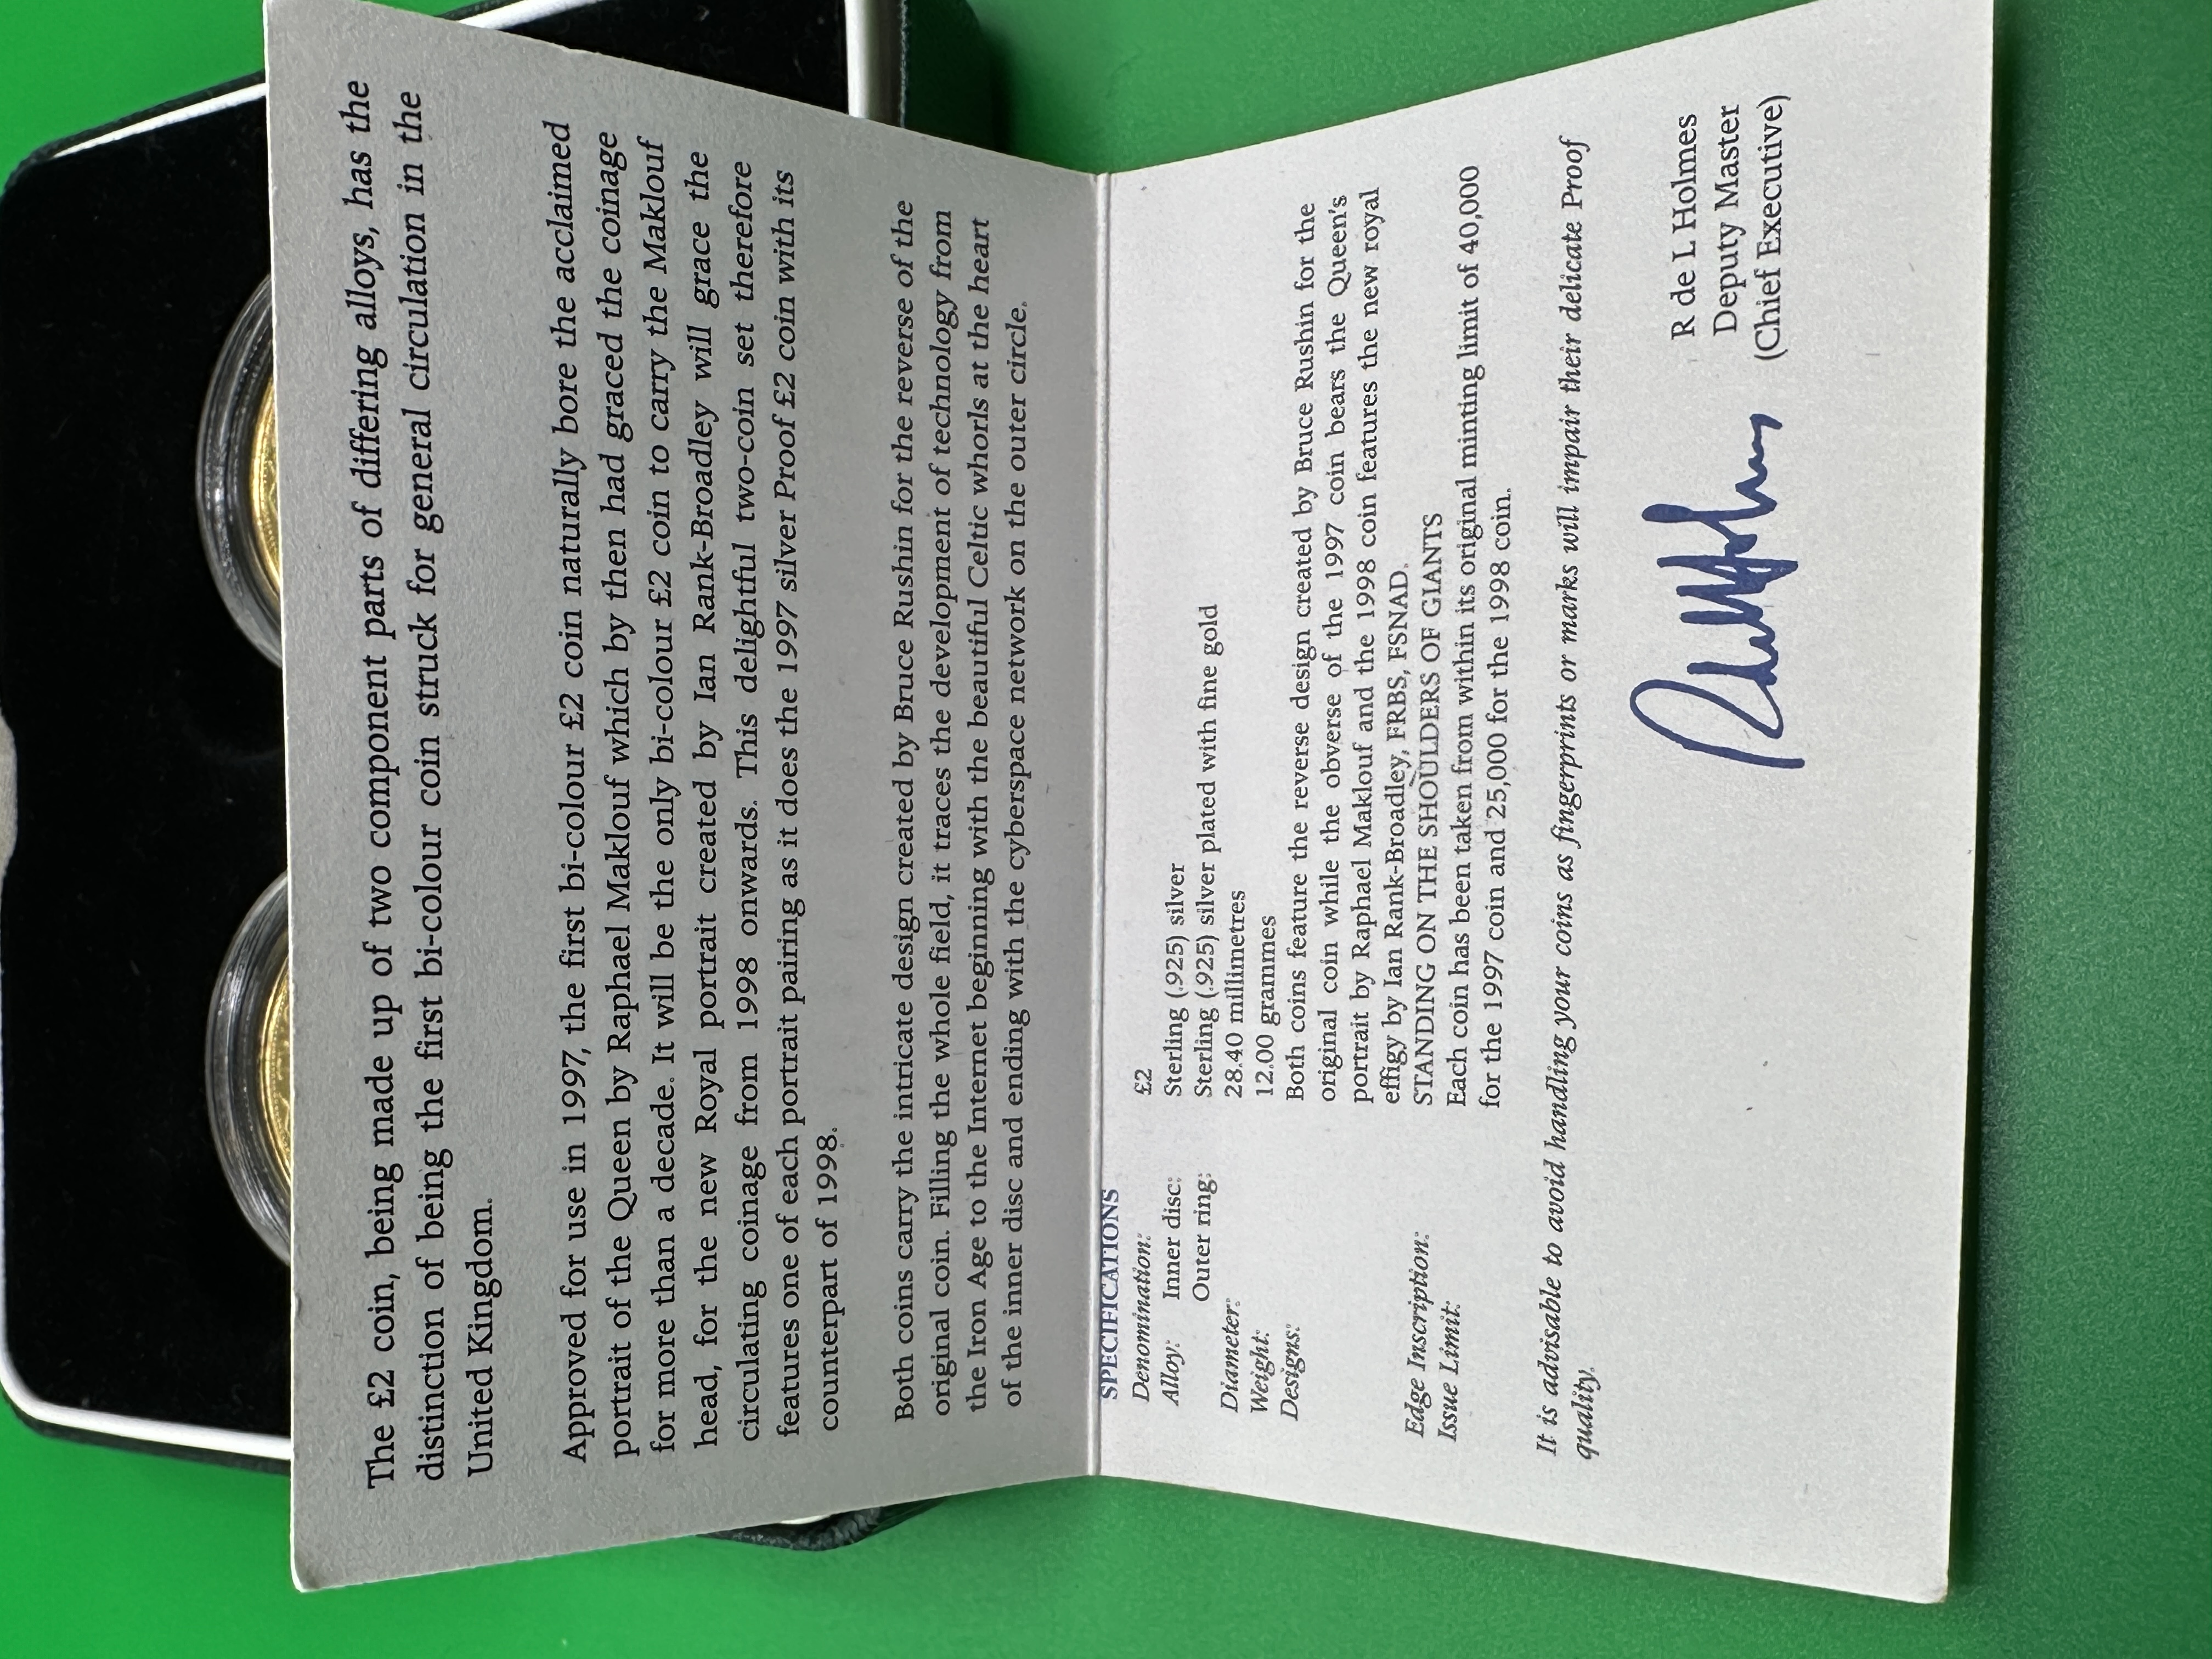 The £2 coin, being made up of two component parts of differing alloys, has the
distinction of being the first bi-colour coin struck for general circulation in the
United Kingdom.
Approved for use in 1997, the first bi-colour £2 coin naturally bore the acclaimed
portrait of the Queen by Raphael Maklouf which by then had graced the coinage
for more than a decade. It will be the only bi-colour £2 coin to carry the Maklouf
head, for the new Royal portrait created by Ian Rank-Broadley will grace the
circulating coinage from 1998 onwards. This delightful two-coin set therefore
features one of each portrait pairing as it does the 1997 silver Proof £2 coin with its
counterpart of 1998.
Both coins carry the intricate design created by Bruce Rushin for the reverse of the
original coin. Filling the whole field, it traces the development of technology from
the Iron Age to the Internet beginning with the beautiful Celtic whorls at the heart
of the inner disc and ending with the cyberspace network on the outer circle.
SPECIFICATIONS
Denomination: £2
Alloy: Inner disc: Sterling (.925) silver
Outer ring: Sterling (.925) silver plated with fine gold
Diameter: 28.40 millimetres
Weight: 12.00 grammes
Designs: Both coins feature the reverse design created by Bruce Rushin for the
original coin while the obverse of the 1997 coin bears the Queen's
portrait by Raphael Maklouf and the 1998 coin features the new royal
effigy by Ian Rank-Broadley, FRBS, FSNAD.
Edge Inscription: STANDING ON THE SHOULDERS OF GIANTS
Issue Limit: Each coin has been taken from within its original minting limit of 40,000
for the 1997 coin and 25,000 for the 1998 coin.
It is advisable to avoid handling your coins as fingerprints or marks will impair their delicate Proof
quality.
R de L Holmes
Deputy Master
(Chief Executive)